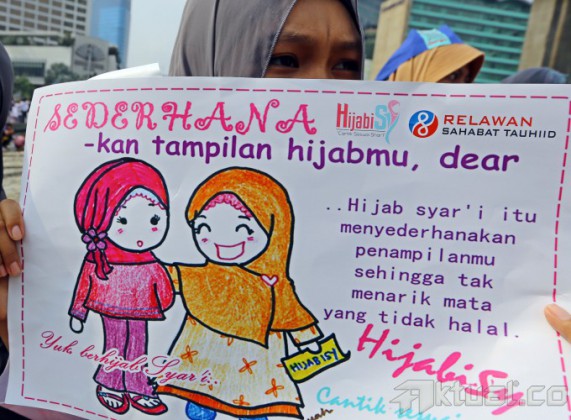 SEDERHANA
HijabiSy
RELAWAN
SAHABAT TAUHIID
-kan tampilan hijabmu, dear
..Hijab syar'i itu
menyederhanakan
penampilanmu
sehingga tak
menarik mata
yang tidak halal.
Yuk berhijab Syar'i..
HIJABISY
HijabiSy
Cantik sesuai
aktual.co